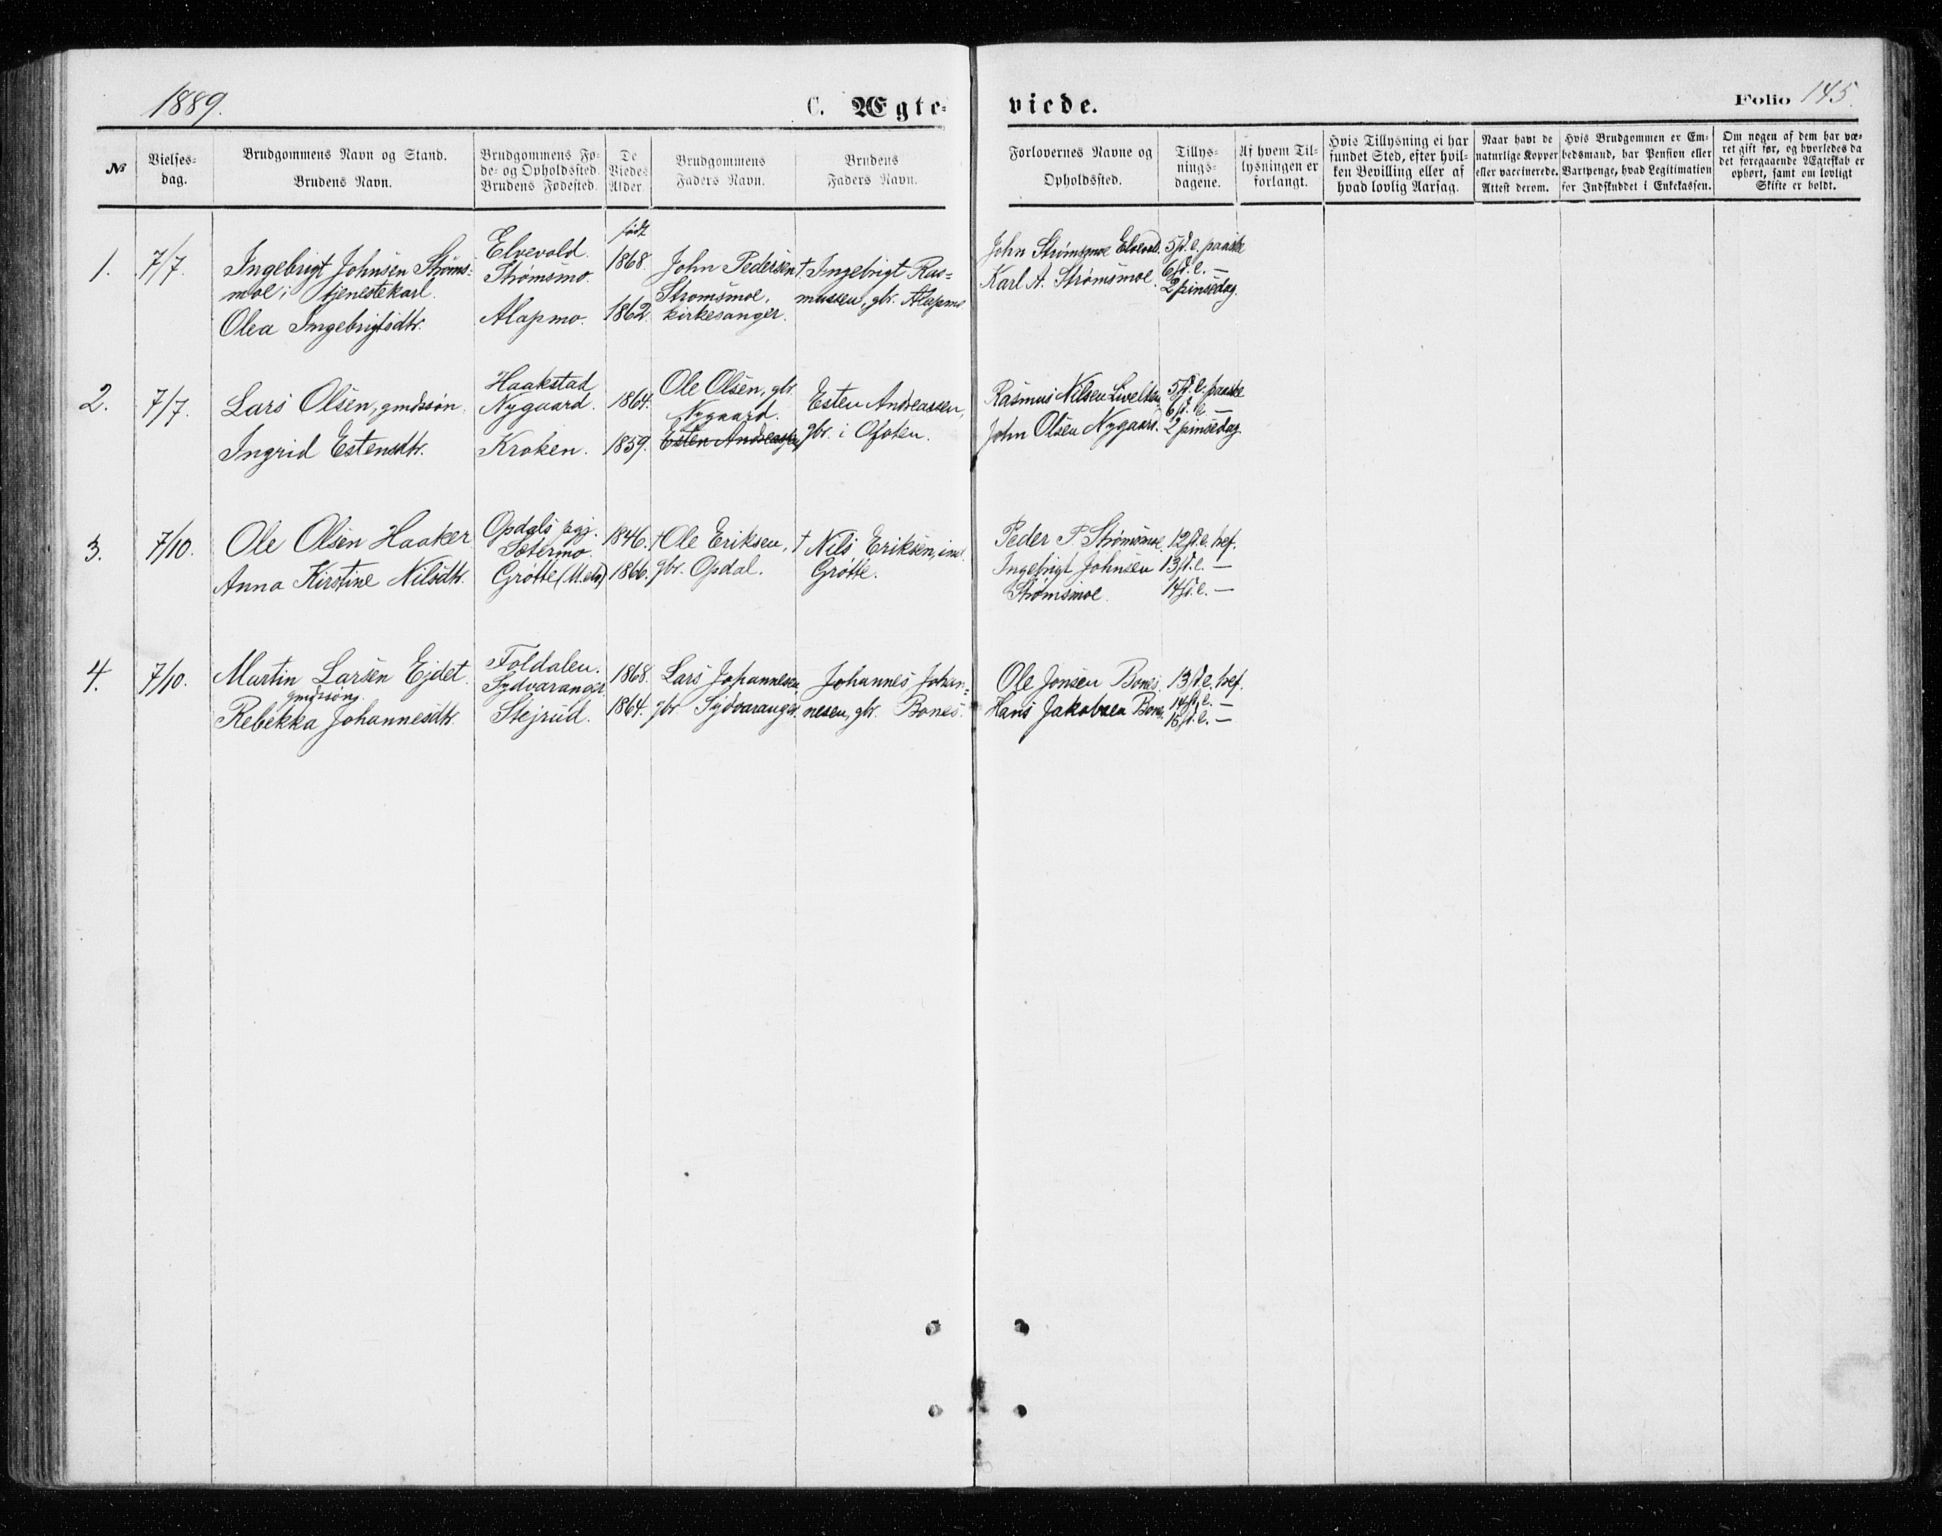 1889.
C. Ægte-
viede.
Folio 145.
No
Vielses-
dag.
Brudgommens Navn og Stand.
Brudens Navn.
Brudgommens Fø-
de- og Opholdssted.
Brudens Fødested.
De
Viedes
Alder.
Brudgommens
Faders Navn.
Brudens
Faders Navn.
Forlovernes Navne og
Opholdssted.
Tillys-
nings-
dagene.
Af hvem Til-
lysningen er
forlangt.
Hvis Tillysning ei har
fundet Sted, efter hvil-
ken Bevilling eller af
hvad lovlig Aarsag.
Naar havt de
naturlige Kopper
eller vaccinerede.
Attest derom.
Hvis Brudgommen er Em-
bedsmand, har Pension eller
Vartpenge, hvad Legitimation
for Indskuddet i Enkekassen.
Om nogen af dem har væ-
ret gift før, og hvorledes da
det foregaaende Ægteskab er
ophørt, samt om lovligt
Skifte er holdt.
1.
7/7.
Ingebrigt Johnsen Strøms-
moe, tjenestekarl.
Olea Ingebrigtsdtr.
Elvevold.
Strømsmo.
Alapmo.
født
1868.
1862.
John Pedersen
Strømsmoe,
kirkesanger.
† Ingebrigt Ras-
mussen, gbr. Alapmo
John Strømsmoe Elvevold.
Karl A. Strømsmoe.
5 S. e. paaske
6 S. e. —
2 pinsedag.
2.
7/7.
Lars Olsen, gmdssøn.
Ingrid Estensdtr.
Haakstad
Nygaard.
Kroken.
1864.
1859.
Ole Olsen, gbr.
Nygaard.
Esten Andreassen
Esten Andreassen,
gbr. i Ofoten.
Rasmus Nilsen
John Olsen Nygaard.
5 S. e. paaske
6 S. e. —
2 pinsedag.
3.
7/10.
Ole Olsen Haaker
Anna Kirstine Nilsdtr.
Opdals pgj.
Sætermo.
Grøtte
1846.
1866.
† Ole Eriksen,
gbr. Opdal.
† Nils Eriksen, ind.
Grøtte.
Peder P Strømsmoe.
Ingebrigt Johnsen
Strømsmoe.
12 S. e. tref.
13 S. e. —
14 S. e. —
4.
7/10.
Martin Larsen Ejdet.
gmdssøn,
Rebekka Johannesdtr.
Foldalen.
Sydvaranger.
Stejrud.
1868.
1864.
Lars Johannesen
gbr Sydvaranger.
Johannes Johan-
nesen, gbr. Bones.
Ole Jonsen Bones.
Hans Jakobsen Bones.
13 S. e. tref.
14 S. e. —
15 S. e. —